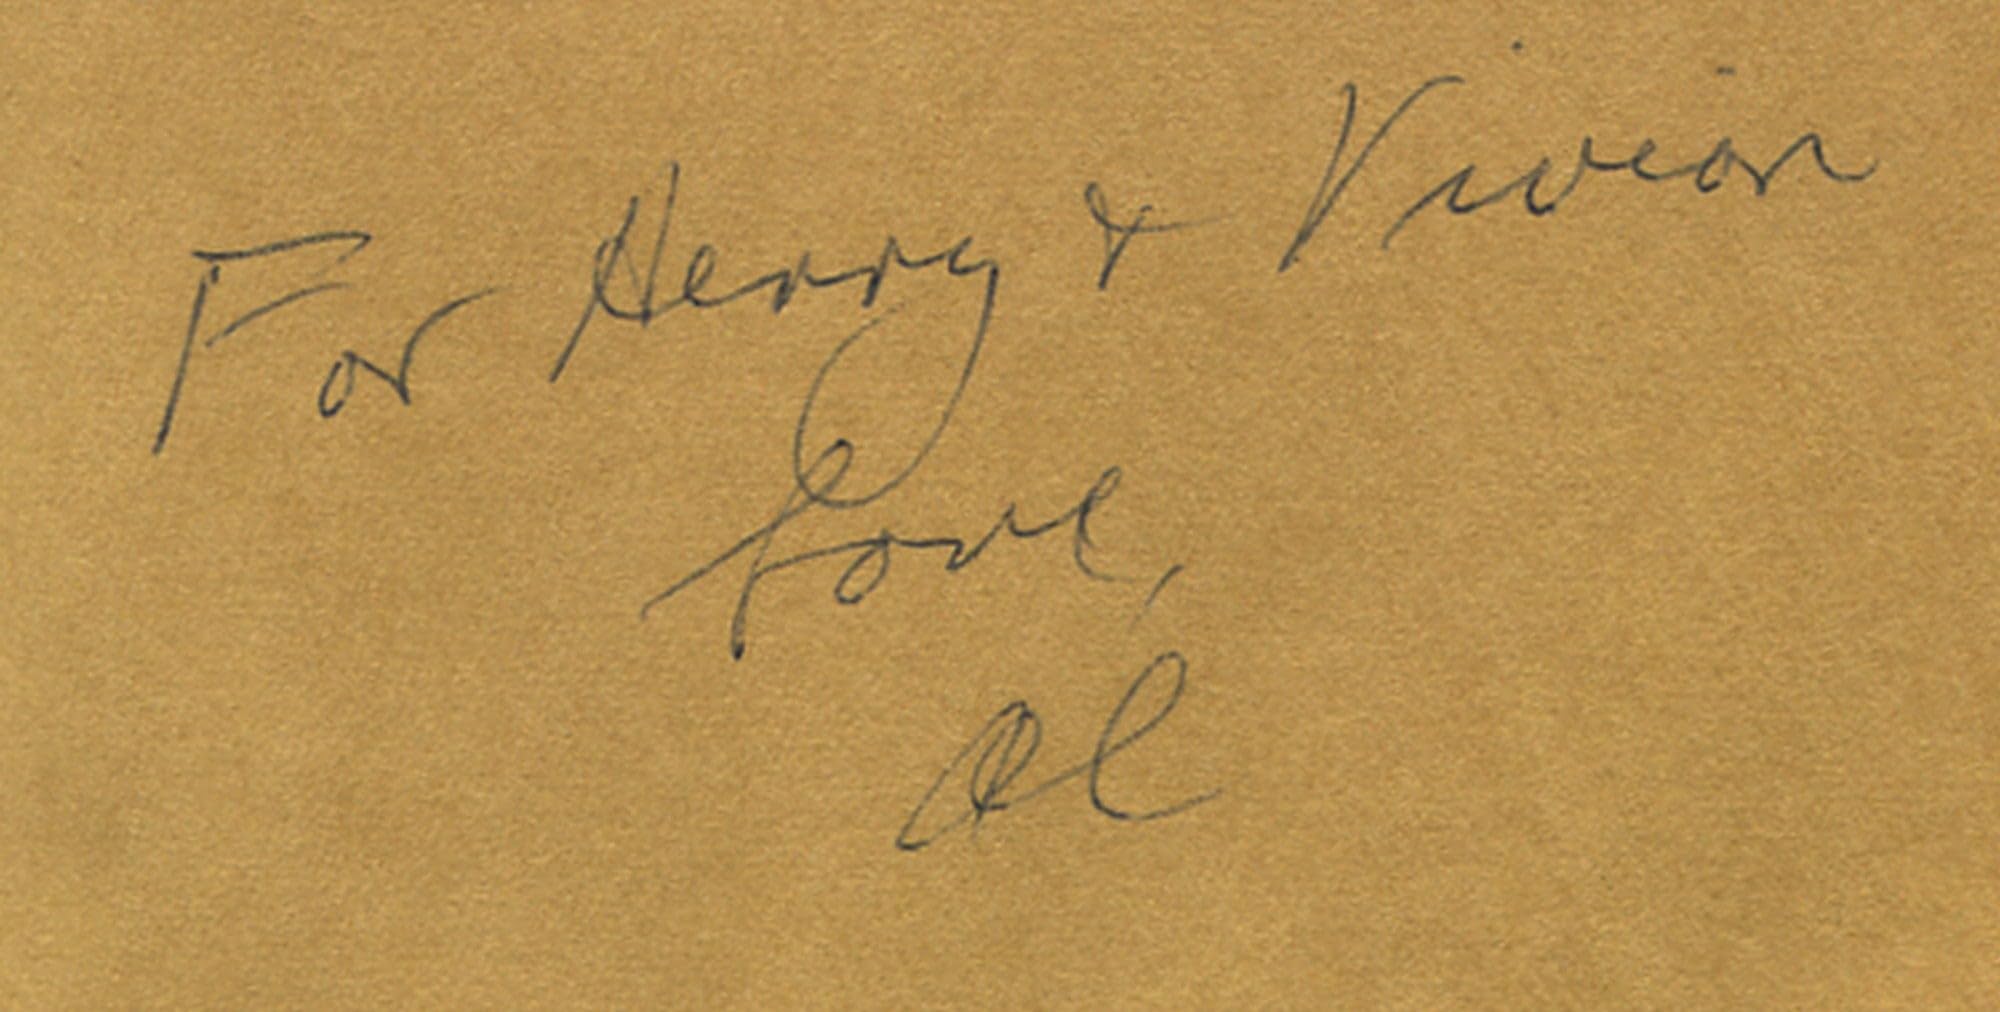 For Henry & Vivian
Love,
Al